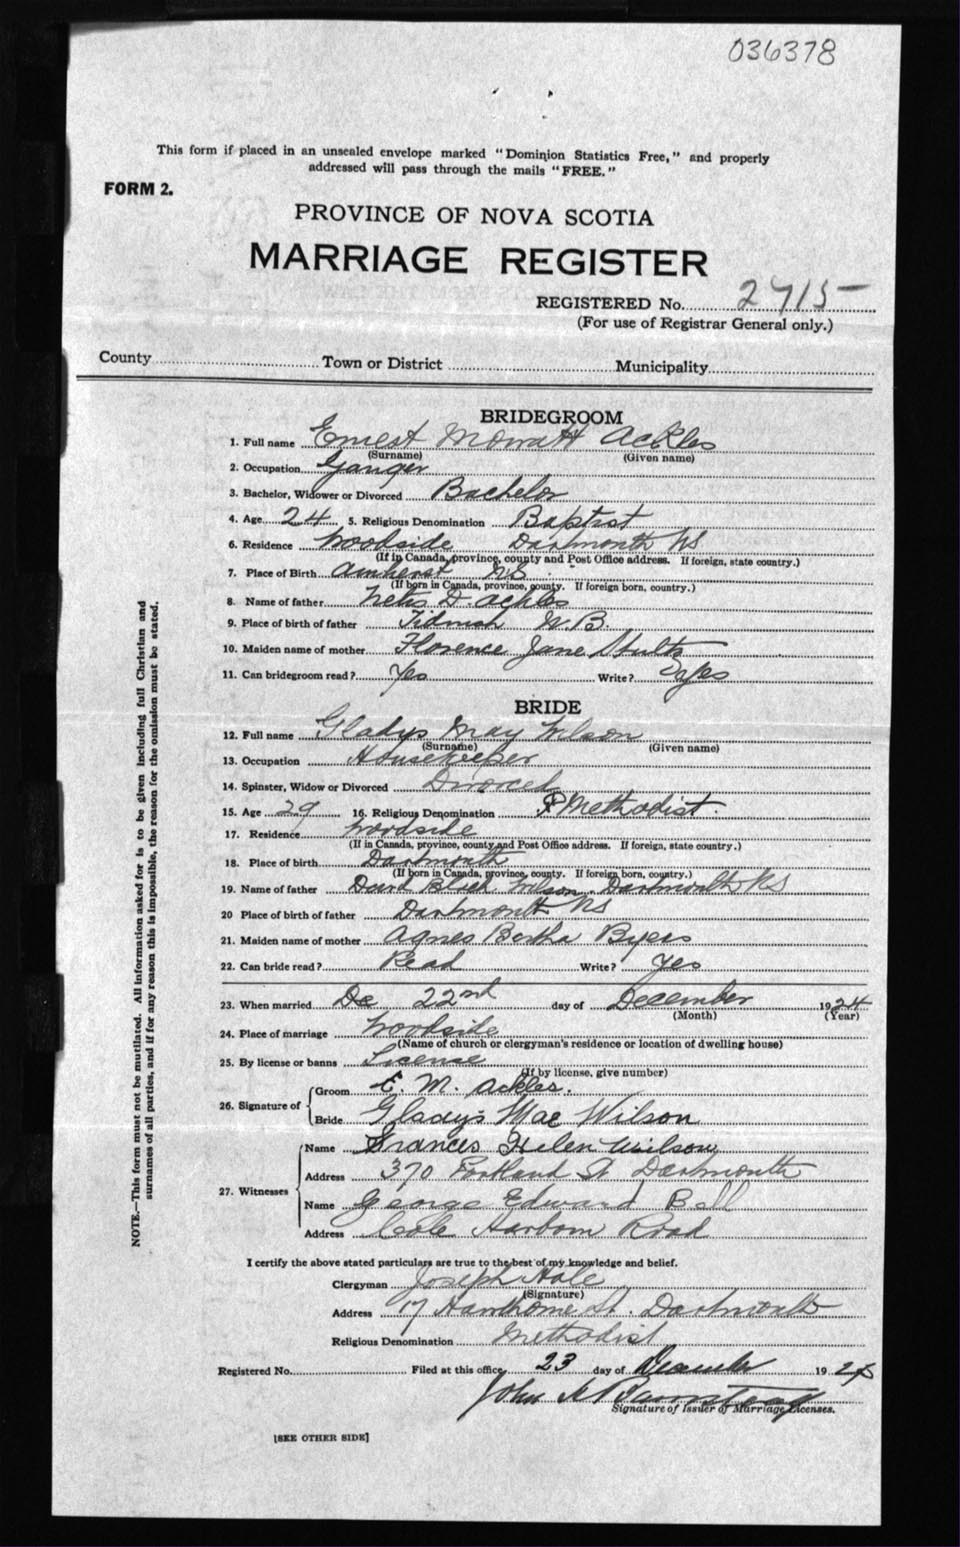 036378
This form if placed in an unsealed envelope marked "Dominion Statistics Free," and properly
addressed will pass through the mails "FREE."
FORM 2.
PROVINCE OF NOVA SCOTIA
MARRIAGE REGISTER
REGISTERED No. 2715
(For use of Registrar General only.)
County Town or District Municipality
BRIDEGROOM
1. Full name Ernest Mowatt Ackles
(Surname) (Given name)
2. Occupation Ganger
3. Bachelor, Widower or Divorced Bachelor
4. Age 24 5. Religious Denomination Baptist
6. Residence Woodside Dartmouth NS
(If in Canada, province, county and Post Office address. If foreign, state country.)
7. Place of Birth Amherst NS.
(If born in Canada, province, county. If foreign born, country.)
8. Name of father D. Ackles
9. Place of birth of father Tidnish N.B.
10. Maiden name of mother Florence Jane Shultz
11. Can bridegroom read? Yes Write? Yes
BRIDE
12. Full name Gladys May Wilson
(Surname) (Given name)
13. Occupation Housekeeper
14. Spinster, Widow or Divorced Divorced
15. Age 29 16. Religious Denomination Methodist.
17. Residence Woodside
(If in Canada, province, county and Post Office address. If foreign, state country.)
18. Place of birth Dartmouth
(If born in Canada, province, county. If foreign born, country.)
19. Name of father David Wilson, Dartmouth NS
20 Place of birth of father Dartmouth NS
21. Maiden name of mother Agnes Bertha Byers
22. Can bride read? Read Write? yes
23. When married De 22nd day of December 1924
(Month) (Year)
24. Place of marriage Woodside
(Name of church or clergyman's residence or location of dwelling house)
25. By license or banns License
(If by license, give number)
26. Signature of Groom E. M. Ackles.
Bride Gladys Mae Wilson
27. Witnesses Name Frances Helen Wilson
Address 370 Portland St Dartmouth
Name George Edward Bell
Address Cole Harbour Road
I certify the above stated particulars are true to the best of my knowledge and belief.
Clergyman Joseph Hale
(Signature)
Address 17 Hawthorne St. Dartmouth
Religious Denomination Methodist
Registered No. Filed at this office 23 day of December 1924
John
Signature of Issuer of Marriage Licenses.
[SEE OTHER SIDE]
NOTE.—This form must not be mutilated. All information asked for is to be given including full Christian and
surnames of all parties, and if for any reason this is impossible, the reason for the omission must be stated.